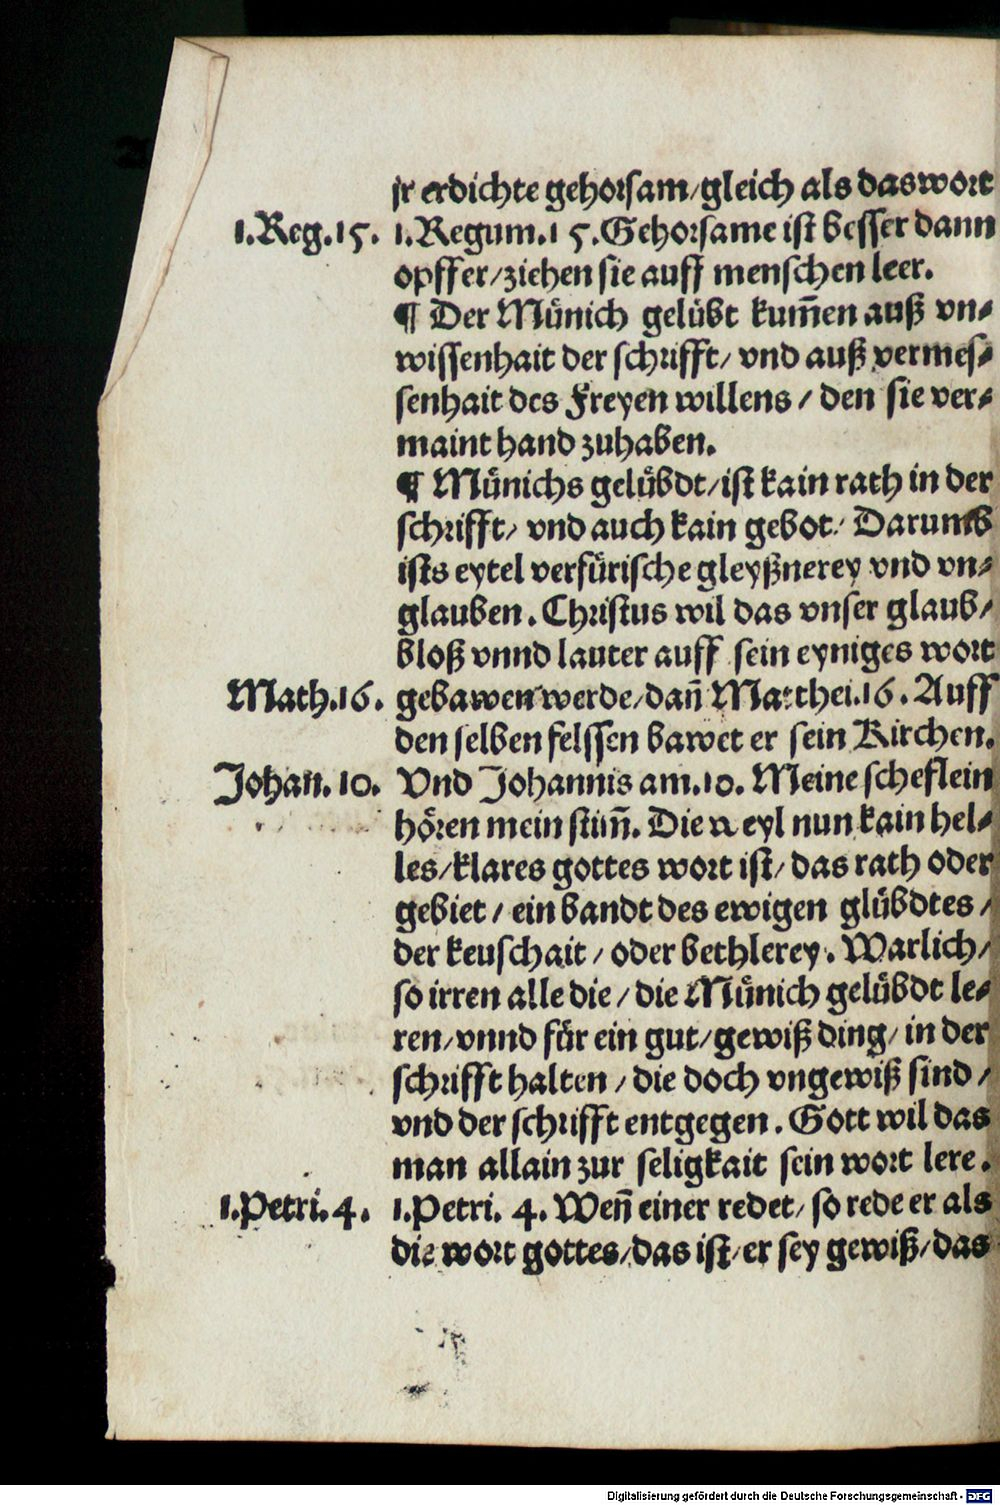 jr erdichte gehorsam/gleich als das wort
1.Reg.15. 1.Regum.15.Gehorsame ist besser dann
opffer/ziehen sie auff menschen leer.
¶ Der Münich gelübt kum̃en auß vn⸗
wissenhait der schrifft/ vnd auß vermes⸗
senhait des Freyen willens / den sie ver⸗
maint hand zuhaben.
¶ Münichs gelübdt/ist kain rath in der
schrifft/ vnd auch kain gebot/ Darumb
ists eytel verfürische gleyßnerey vnd vn⸗
glauben. Christus wil das vnser glaub/
bloß vnnd lauter auff sein eyniges wort
Math.16. gebawen werde/dañ Matthei.16. Auff
den selben felssen bawet er sein Kirchen.
Johan. 10. Vnd Johannis am.10. Meine scheflein
hören mein stim̃. Die weyl nun kain hel⸗
les/klares gottes wort ist/ das rath oder
gebiet / ein bandt des ewigen glübdtes /
der keuschait / oder bethlerey. Warlich/
so irren alle die / die Münich gelübdt le⸗
ren/vnnd für ein gut/gewiß ding/ in der
schrifft halten / die doch vngewiß sind /
vnd der schrifft entgegen. Gott wil das
man allain zur seligkait sein wort lere.
1.Petri.4. 1.Petri. 4. Weñ einer redet/ so rede er als
die wort gottes/das ist/er sey gewiß/das
Digitalisierung gefördert durch die Deutsche Forschungsgemeinschaft - DFG